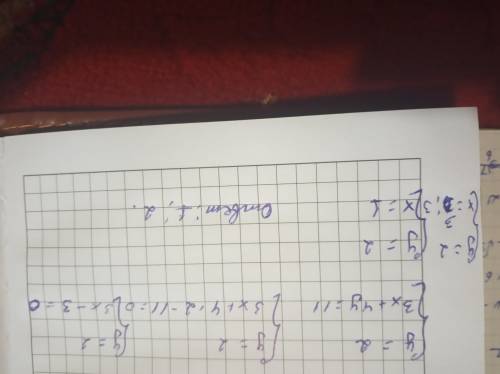 { y = 2
3x + 4y = 11
{ y = 2
3x + 4 · 2 - 11 = 0
{ y = 2
3x - 3 = 0
{ y = 2
x = 3 : 3
{ y = 2
x = 1
Ответ: 1; 2.